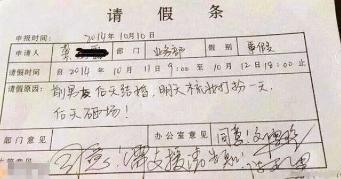 请假条
申报时间: 2014年10月10日
申请人 部门 业务部 假别 事假
请假时间 自2014年10月11日9:00至10月12日18:00止
请假原因: 前男友后天结婚,明天不我打扮一天,
后天砸场!
部门意见 办公室意见 同意!
同意!需支援请告知!